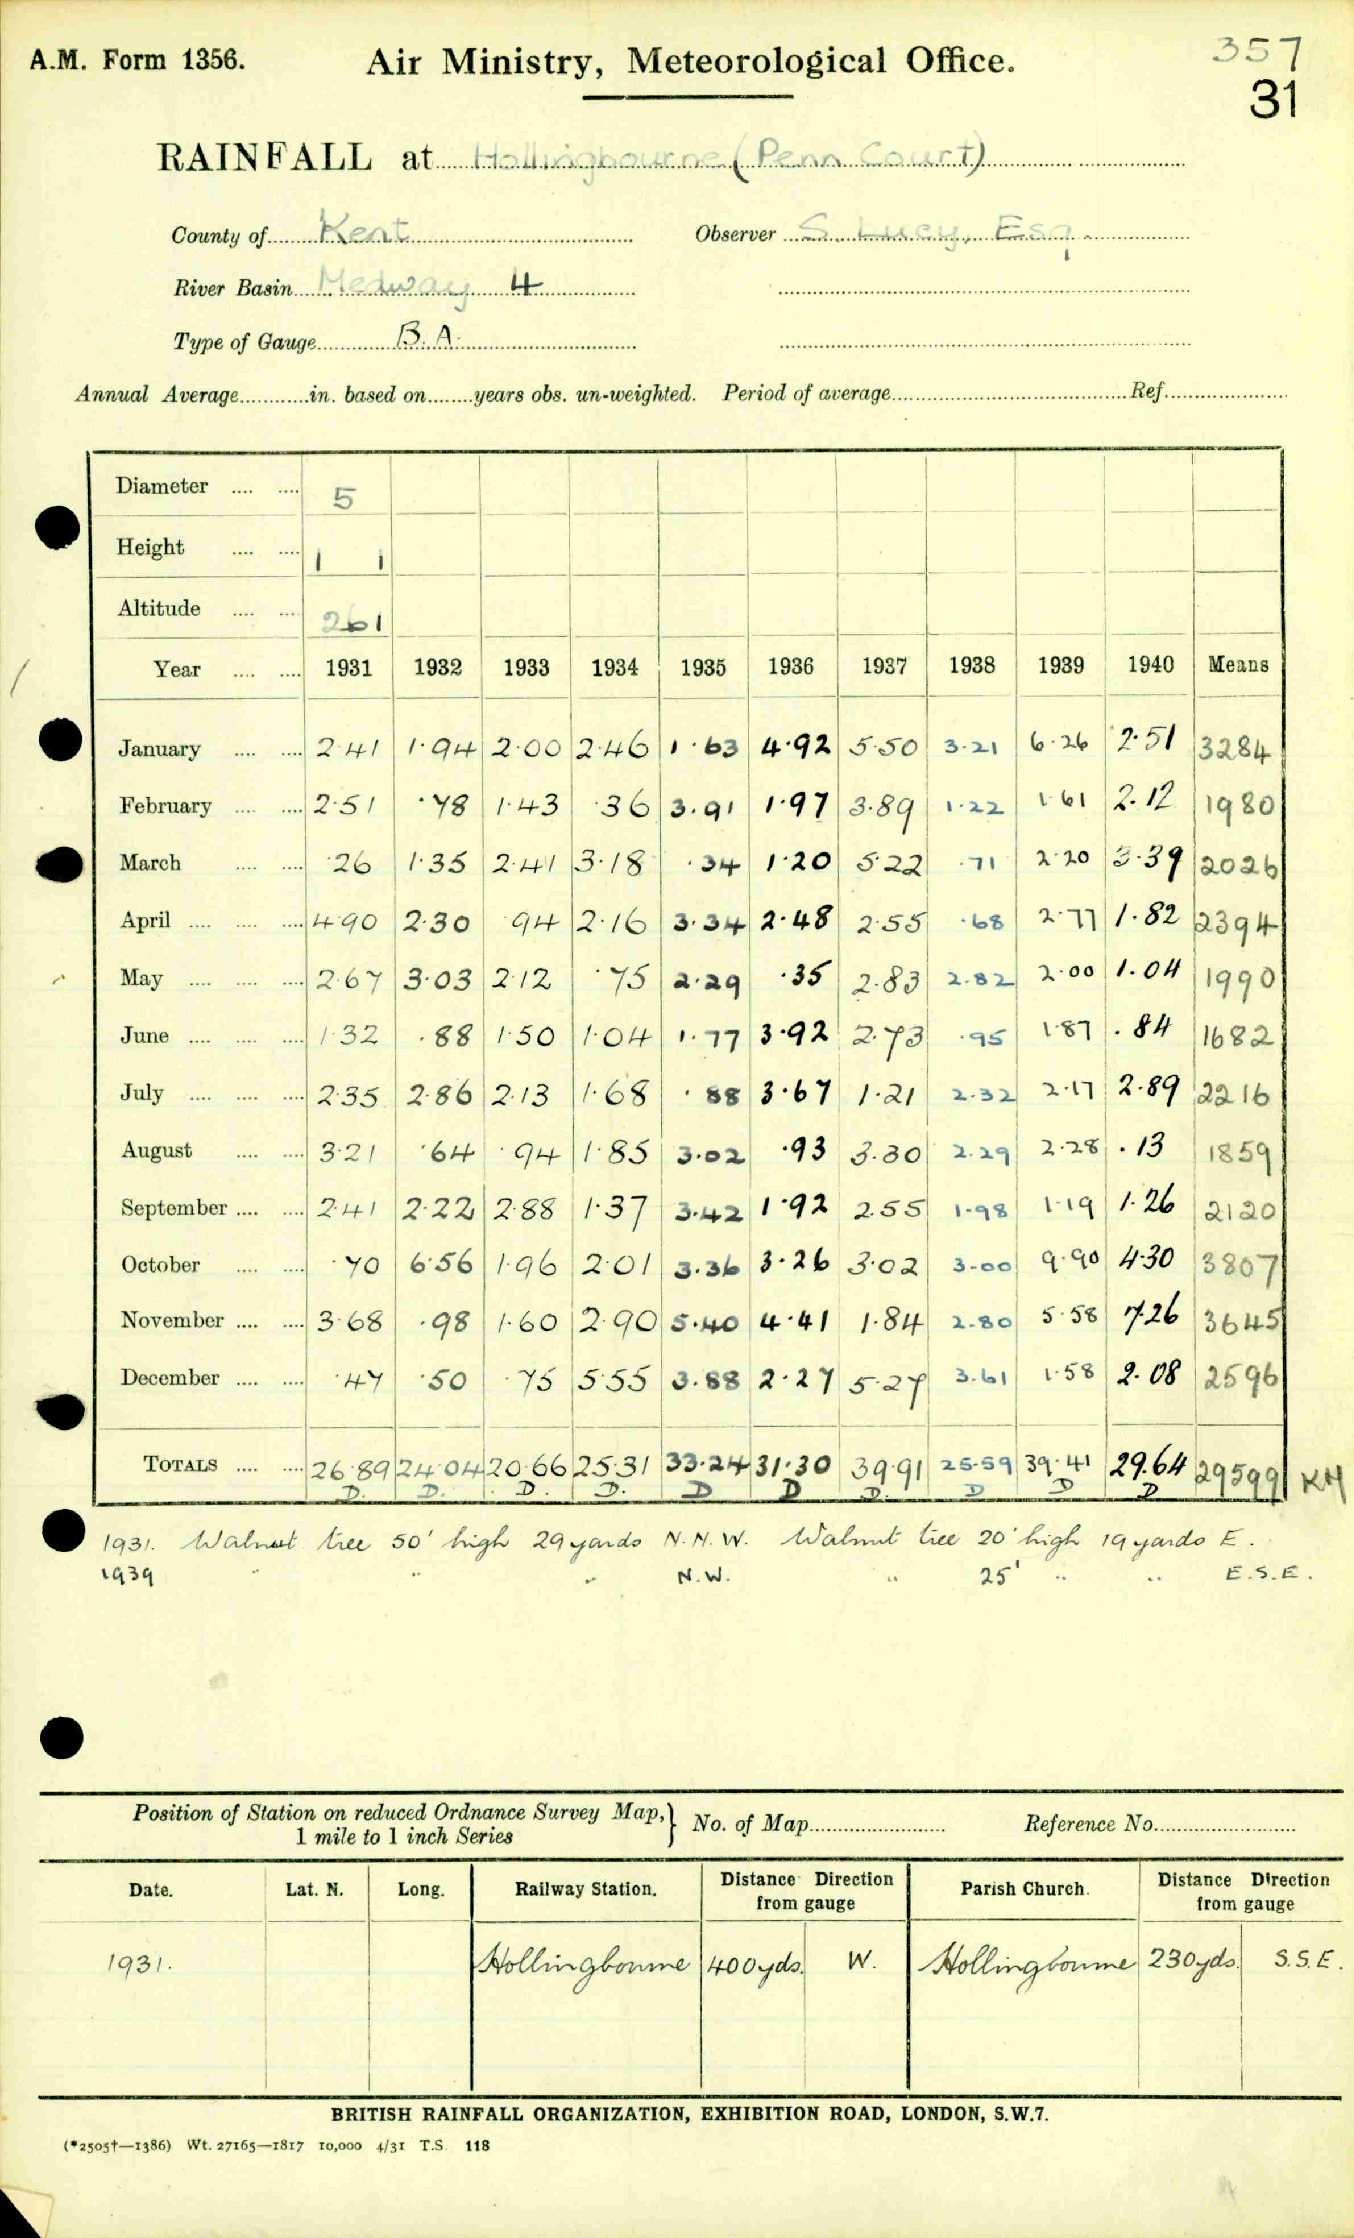 A.M. Form 1356. Air Ministry, Meteorological Office. 357
31
RAINFALL at Hollingbourne (Penn Court)
County of Kent Observer S. Lucy, Esq.
River Basin Medway 4
Type of Gauge B.A.
Annual Average in. based on years obs. un-weighted. Period of average Ref.
Diameter 5
Height 1 1
Altitude 261
Year 1931 1932 1933 1934 1935 1936 1937 1938 1939 1940 Means
January 2.41 1.94 2.00 2.46 1.63 4.92 5.50 3.21 6.26 2.51 3284
February 2.51 .78 1.43 .36 3.91 1.97 3.89 1.22 1.61 2.12 1980
March .26 1.35 2.41 3.18 .34 1.20 5.22 .71 2.20 3.39 2026
April 4.90 2.30 .94 2.16 3.34 2.48 2.55 .68 2.77 1.82 2394
May 2.67 3.03 2.12 .75 2.29 .35 2.83 2.82 2.00 1.04 1990
June 1.32 .88 1.50 1.04 1.77 3.92 2.73 .95 1.87 .84 1682
July 2.35 2.86 2.13 1.68 .88 3.67 1.21 2.32 2.17 2.89 2216
August 3.21 .64 .94 1.85 3.02 .93 3.30 2.29 2.28 .13 1859
September 2.41 2.22 2.88 1.37 3.42 1.92 2.55 1.98 1.19 1.26 2120
October .70 6.56 1.96 2.01 3.36 3.26 3.02 3.00 9.90 4.30 3807
November 3.68 .98 1.60 2.90 5.40 4.41 1.84 2.80 5.58 7.26 3645
December .47 .50 .75 5.55 3.88 2.27 5.27 3.61 1.58 2.08 2596
TOTALS 26.89 24.04 20.66 25.31 33.24 31.30 39.91 25.59 39.41 29.64 29599 KH
D. D. D. D. D D D. D D D
1931. Walnut tree 50' high 29 yards N.N.W. Walnut tree 20' high 19 yards E.
1939 " " " N.W. " 25' " " E.S.E.
Position of Station on reduced Ordnance Survey Map, } No. of Map Reference No.
1 mile to 1 inch Series
Date. Lat. N. Long. Railway Station. Distance Direction from gauge Parish Church. Distance Direction from gauge
1931. Hollingbourne 400 yds. W. Hollingbourne 230 yds. S.S.E.
BRITISH RAINFALL ORGANIZATION, EXHIBITION ROAD, LONDON, S.W.7.
(*2505†—1386) Wt. 27165—1817 10,000 4/31 T.S. 118